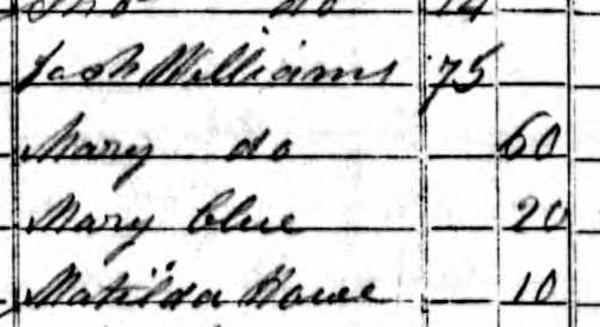 do 14
Jash Williams 75
Mary do 60
Mary Clue 20
Matilda Howe 10